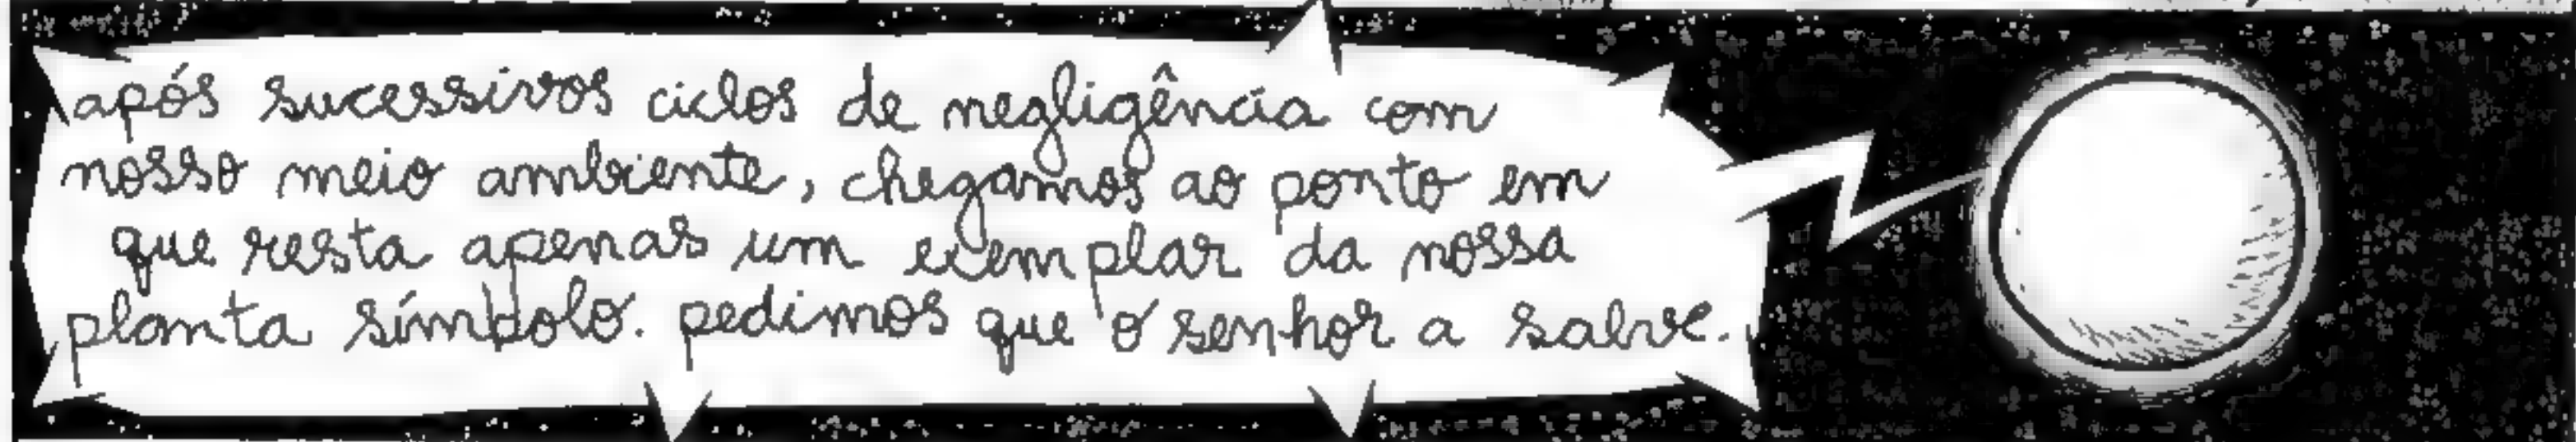 após sucessivos ciclos de negligência com
nosso meio ambiente, chegamos ao ponto em
que resta apenas um exemplar da nossa
planta símbolo. pedimos que o senhor a salve.